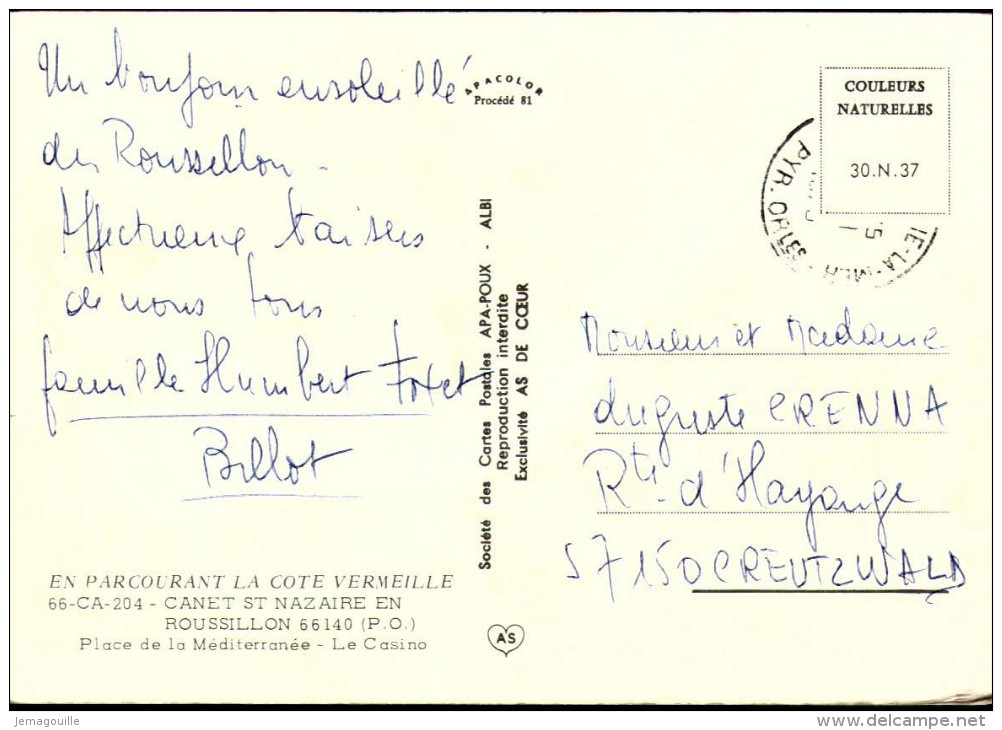 Un bonjour ensoleillé
du Roussillon -
Affectueux baisers
de nous tous
famille Humbert
Billot
EN PARCOURANT LA COTE VERMEILLE
66-CA-204 - CANET ST NAZAIRE EN
ROUSSILLON 66140 (P.O.)
Place de la Méditerranée - Le Casino
APACOLOR
Procédé 81
Société des Cartes Postales APA-POUX - ALBI
Reproduction interdite
Exclusivité AS DE CŒUR
AS
COULEURS
NATURELLES
30.N.37
PYR. OR
IE-LA-MER
Monsieur et Madame
Auguste CRENNA
Rte d'Hayange
57150 CREUTZWALD
Jemagouille
www.delcampe.net